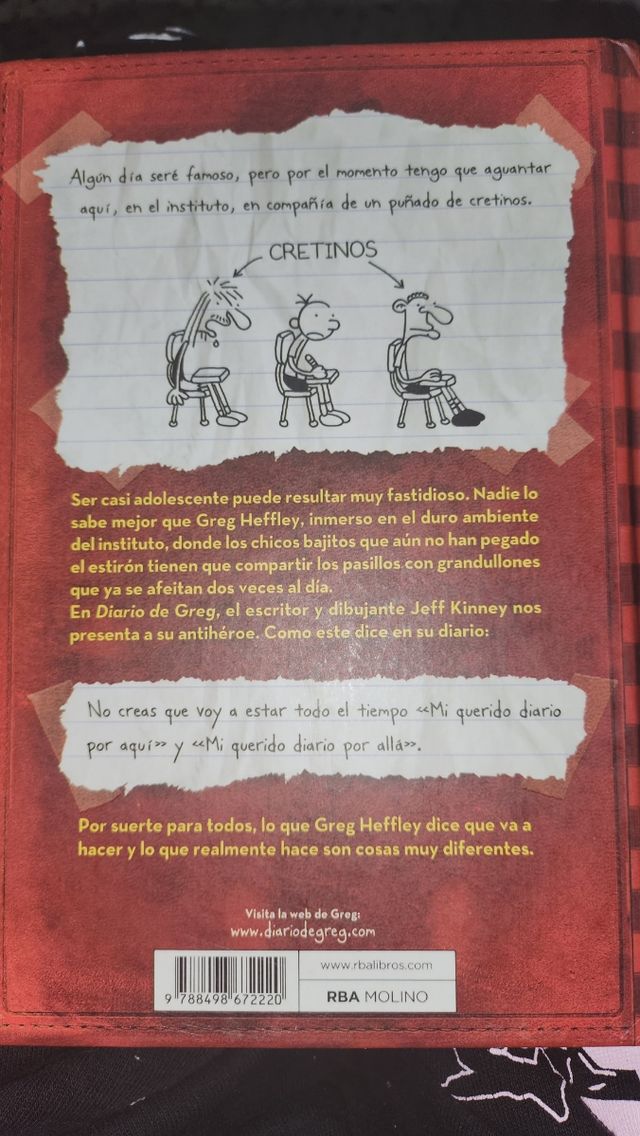 Algún día seré famoso, pero por el momento tengo que aguantar
aquí, en el instituto, en compañía de un puñado de cretinos.
CRETINOS
Ser casi adolescente puede resultar muy fastidioso. Nadie lo
sabe mejor que Greg Heffley, inmerso en el duro ambiente
del instituto, donde los chicos bajitos que aún no han pegado
el estirón tienen que compartir los pasillos con grandullones
que ya se afeitan dos veces al día.
En Diario de Greg, el escritor y dibujante Jeff Kinney nos
presenta a su antihéroe. Como este dice en su diario:
No creas que voy a estar todo el tiempo «Mi querido diario
por aquí» y «Mi querido diario por allá».
Por suerte para todos, lo que Greg Heffley dice que va a
hacer y lo que realmente hace son cosas muy diferentes.
Visita la web de Greg:
www.diariodegreg.com
9 788498 672220
www.rbalibros.com
RBA MOLINO